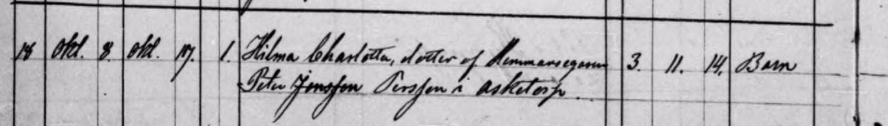 18 Okt. 8. Okt. 17. 1. Hilma Charlotta, dotter af Hemmansegaren 3. 11. 14. Barn
Peter Jonsson Persson i Asketorp